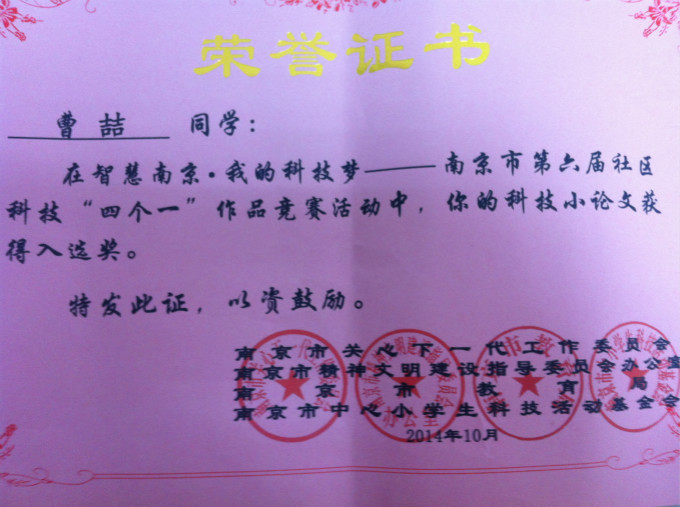 荣誉证书
曹喆 同学：
在智慧南京·我的科技梦——南京市第六届社区
科技“四个一”作品竞赛活动中，你的科技小论文获
得入选奖。
特发此证，以资鼓励。
南京市关心下一代工作委员会
南京市精神文明建设指导委员会办公室
南京市教育局
南京市中心小学生科技活动基金会
2014年10月